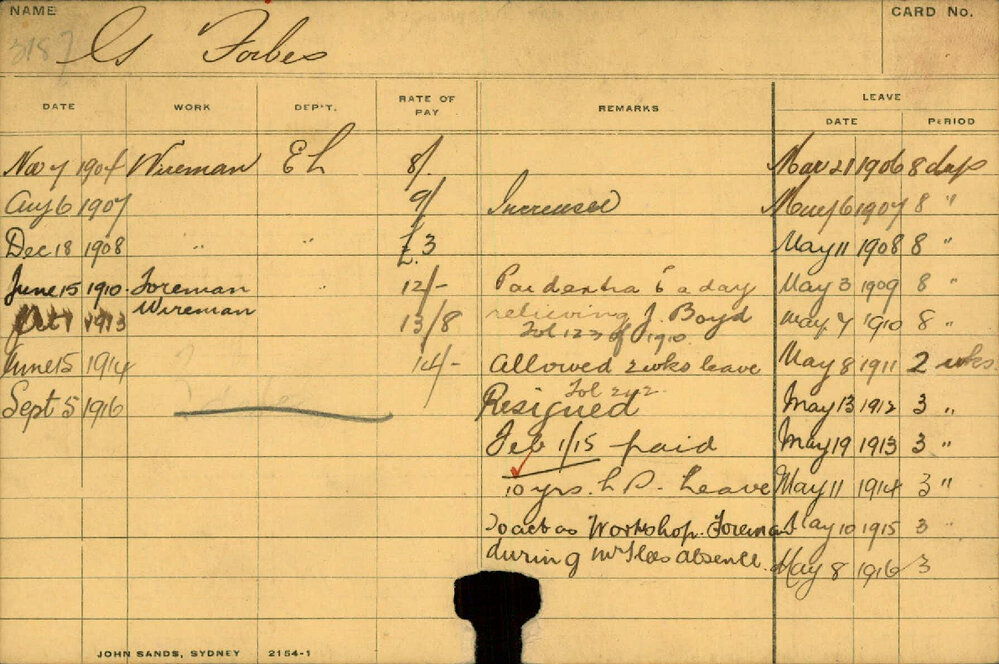 NAME CARD No.
3187 G Forbes
DATE WORK DEP'T. RATE OF PAY REMARKS LEAVE
DATE PERIOD
Nov 7 1904 Wireman E L 8/. Mar 21 1906 8 days
Aug 6 1907 9/ Increased May 6 1907 8 "
Dec 18 1908 " " £3 May 11 1908 8 "
June 15 1910 Foreman 12/- Paid extra 6 a day May 3 1909 8 "
Oct 1 1913 Wireman 13/8 relieving J. Boyd May 7 1910 8 "
Fol 123 of 1910.
June 15 1914 14/- Allowed 2 wks leave May 8 1911 2 wks.
Fol 242
Sept 5 1916 Resigned May 13 1912 3 "
Feb 1/15 paid May 19 1913 3 "
10 yrs. L S. Leave May 11 1914 3 "
To act as Workshop Foreman May 10 1915 3 "
during Mr absence. May 8 1916 3
JOHN SANDS, SYDNEY 2154-1